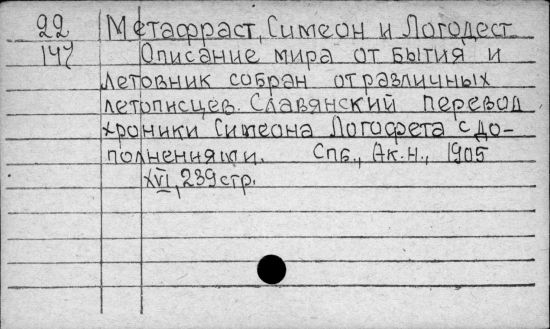 22 Метафраст, Симеон и Логодест
147 Описание мира от бытия и
летовник собран от различных
летописцев. Славянский перевод
хроники Симеона Логофета с до-
полнениями. Спб., Ак.Н., 1905
XVI, 239 стр.